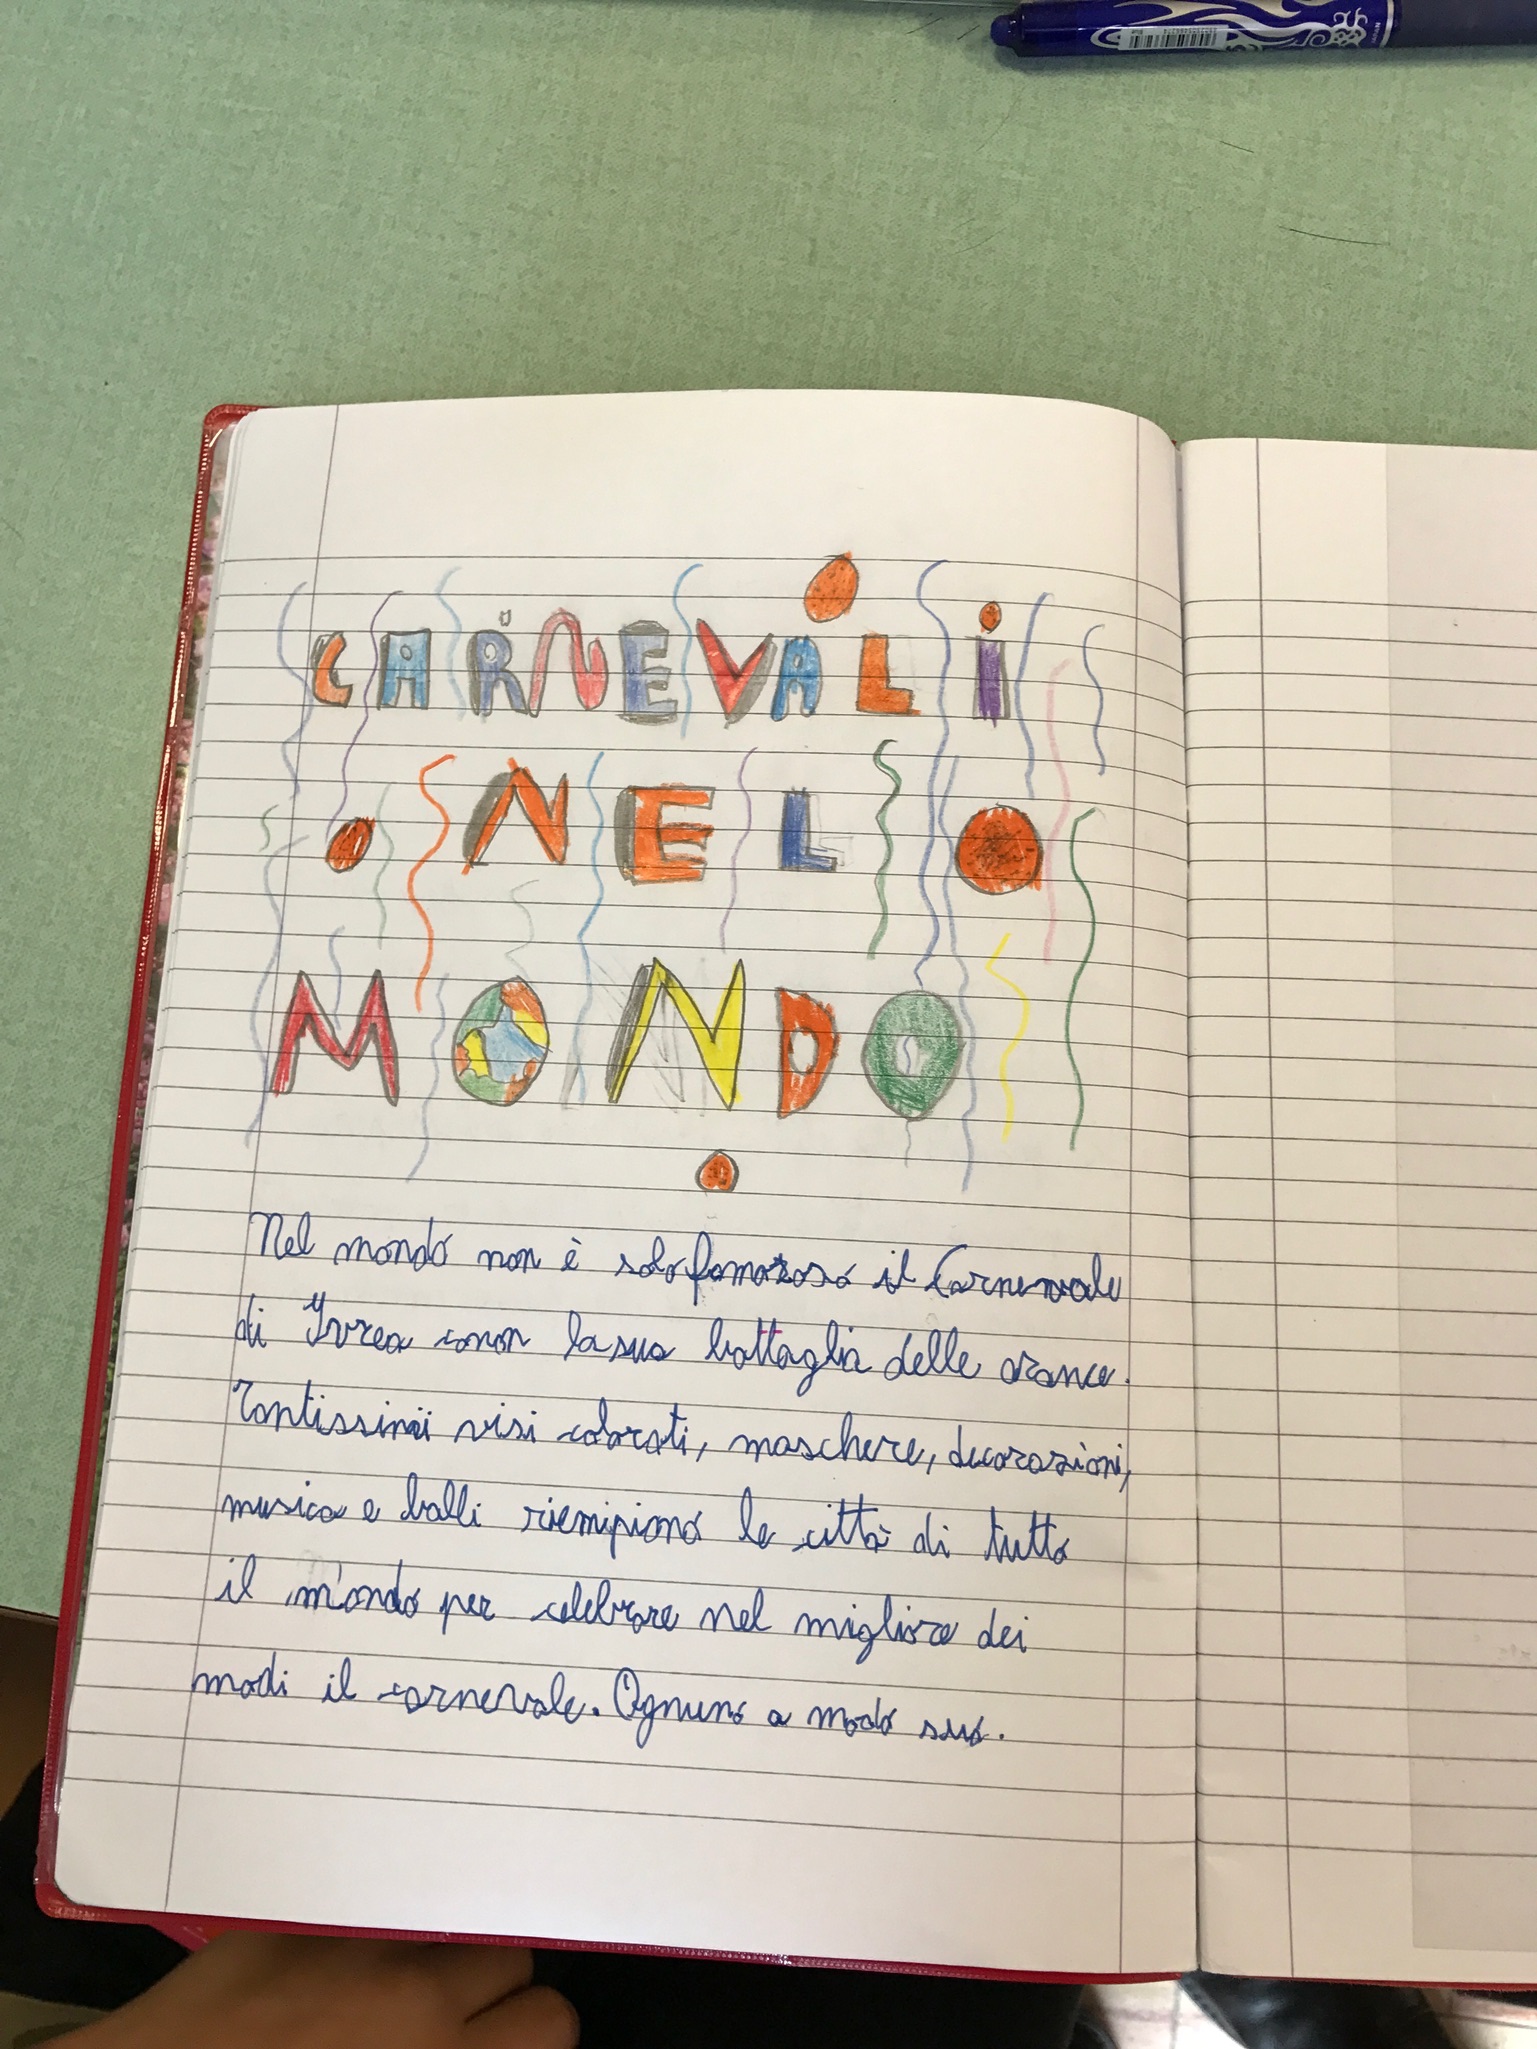 CARNEVALI
NEL
MONDO
Nel mondo non è solo famoso il Carnevale
di Ivrea conon la sua battaglia delle arance.
Tantissimi visi colorati, maschere, decorazioni,
musica e balli riempiono le città di tutto
il mondo per celebrare nel migliore dei
modi il carnevale. Ognuno a modo suo.